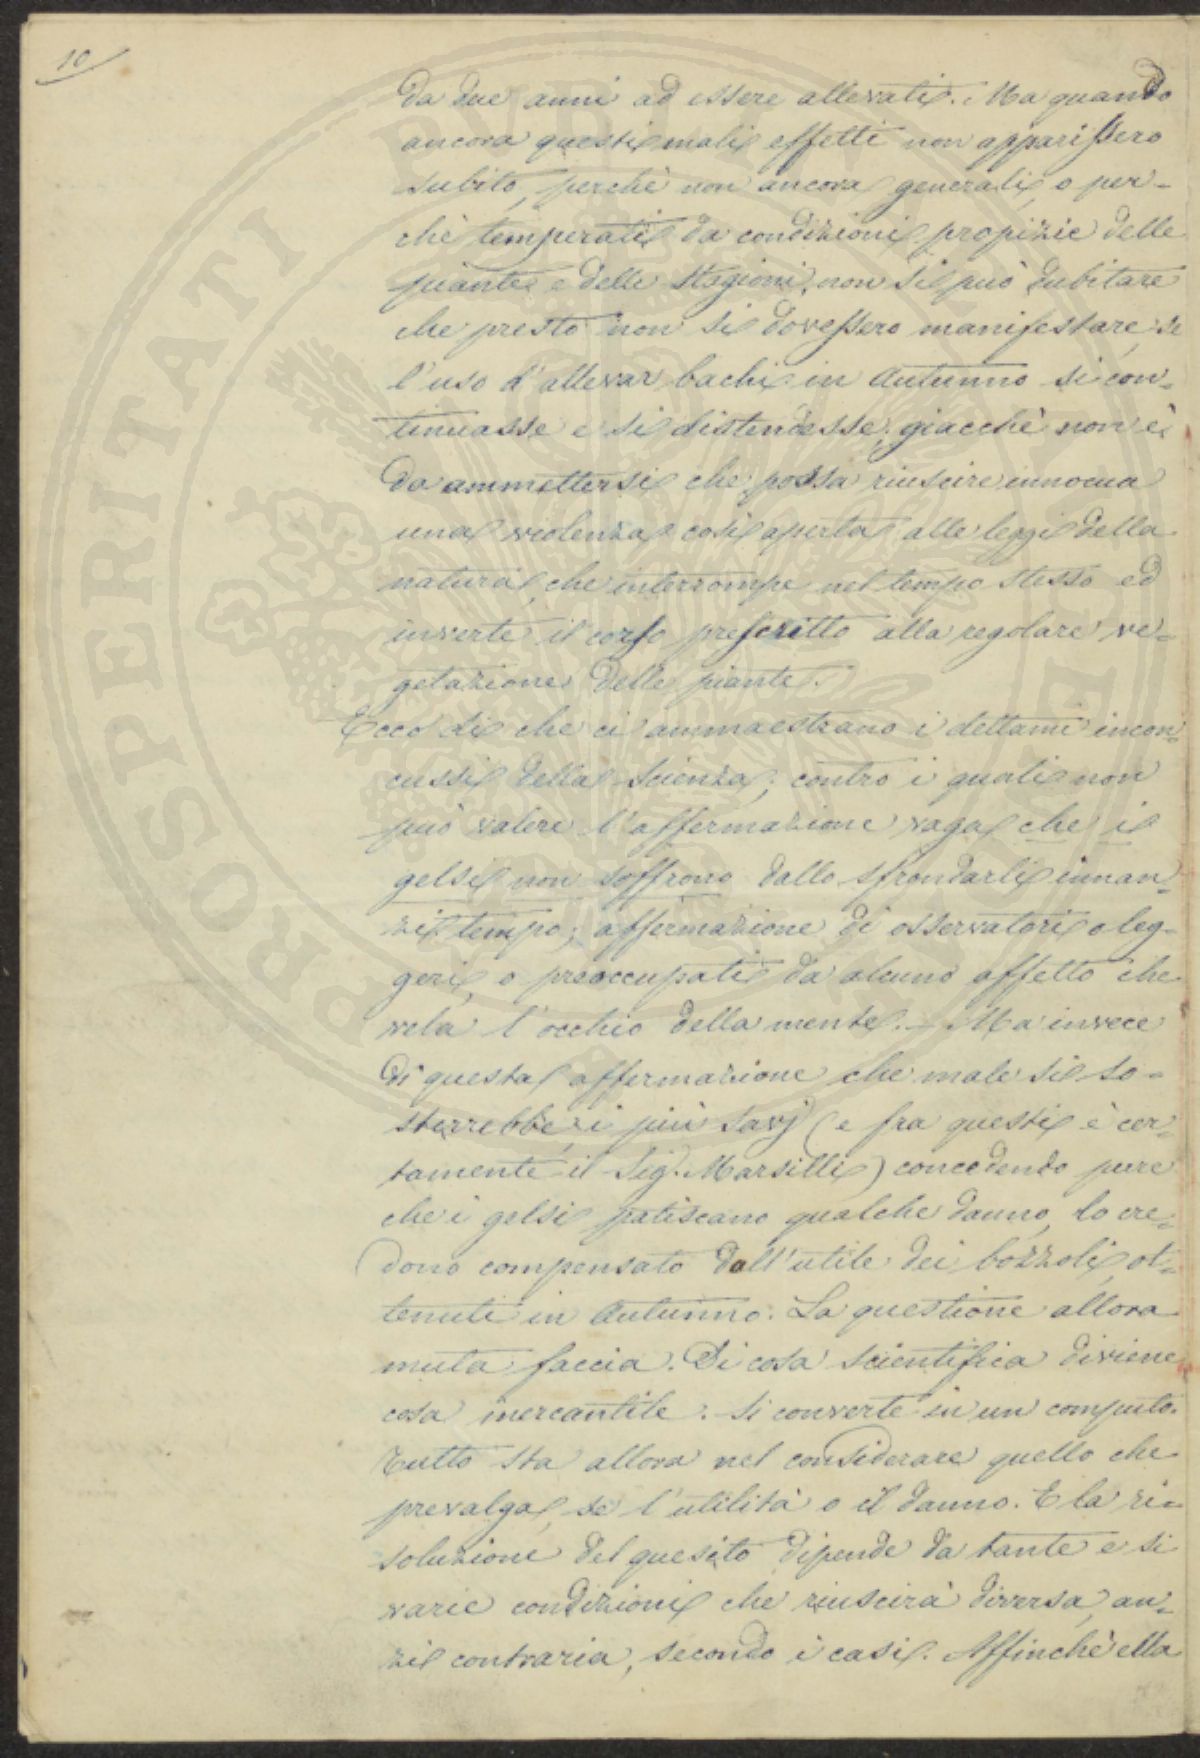 10
da due anni ad essere allevati. Ma quando
ancora questi mali effetti non apparissero
subito, perchè non ancora generali, o per-
chè temperati da condizioni propizie delle
piante e delle stagioni, non si può dubitare
che presto non si dovessero manifestare, se
l'uso d'allevar bachi in Autunno si con-
tinuasse e si distendesse; giacchè non è
da ammettersi che possa riuscire innocua
una violenza così aperta alle leggi della
natura, che interrompe nel tempo stesso ed
inverte il corso prescritto alla regolare ve-
getazione delle piante.
Ecco di che ci ammaestrano i dettami incon-
cussi della Scienza; contro i quali non
può valere l'affermazione vaga che i
gelsi non soffrono dallo sfrondarli innan-
zi tempo; affermazione di osservatori o leg-
geri, o preoccupati da alcuno affetto che
vela l'occhio della mente. - Ma invece
di questa affermazione che male si so-
sterrebbe, i più savj (e fra questi è cer-
tamente il Sig. Marsilli) concedendo pure
che i gelsi patiscano qualche danno, lo cre-
dono compensato dall'utile dei bozzoli ot-
tenuti in Autunno. La questione allora
muta faccia. Di cosa scientifica diviene
cosa mercantile. Si converte in un computo.
Tutto sta allora nel considerare quello che
prevalga, se l'utilità o il danno. E la ri-
soluzione del quesito dipende da tante e sì
varie condizioni che riuscirà diversa, an-
zi contraria, secondo i casi. Affinchè ella
PROSPERITATI PUBLICAE